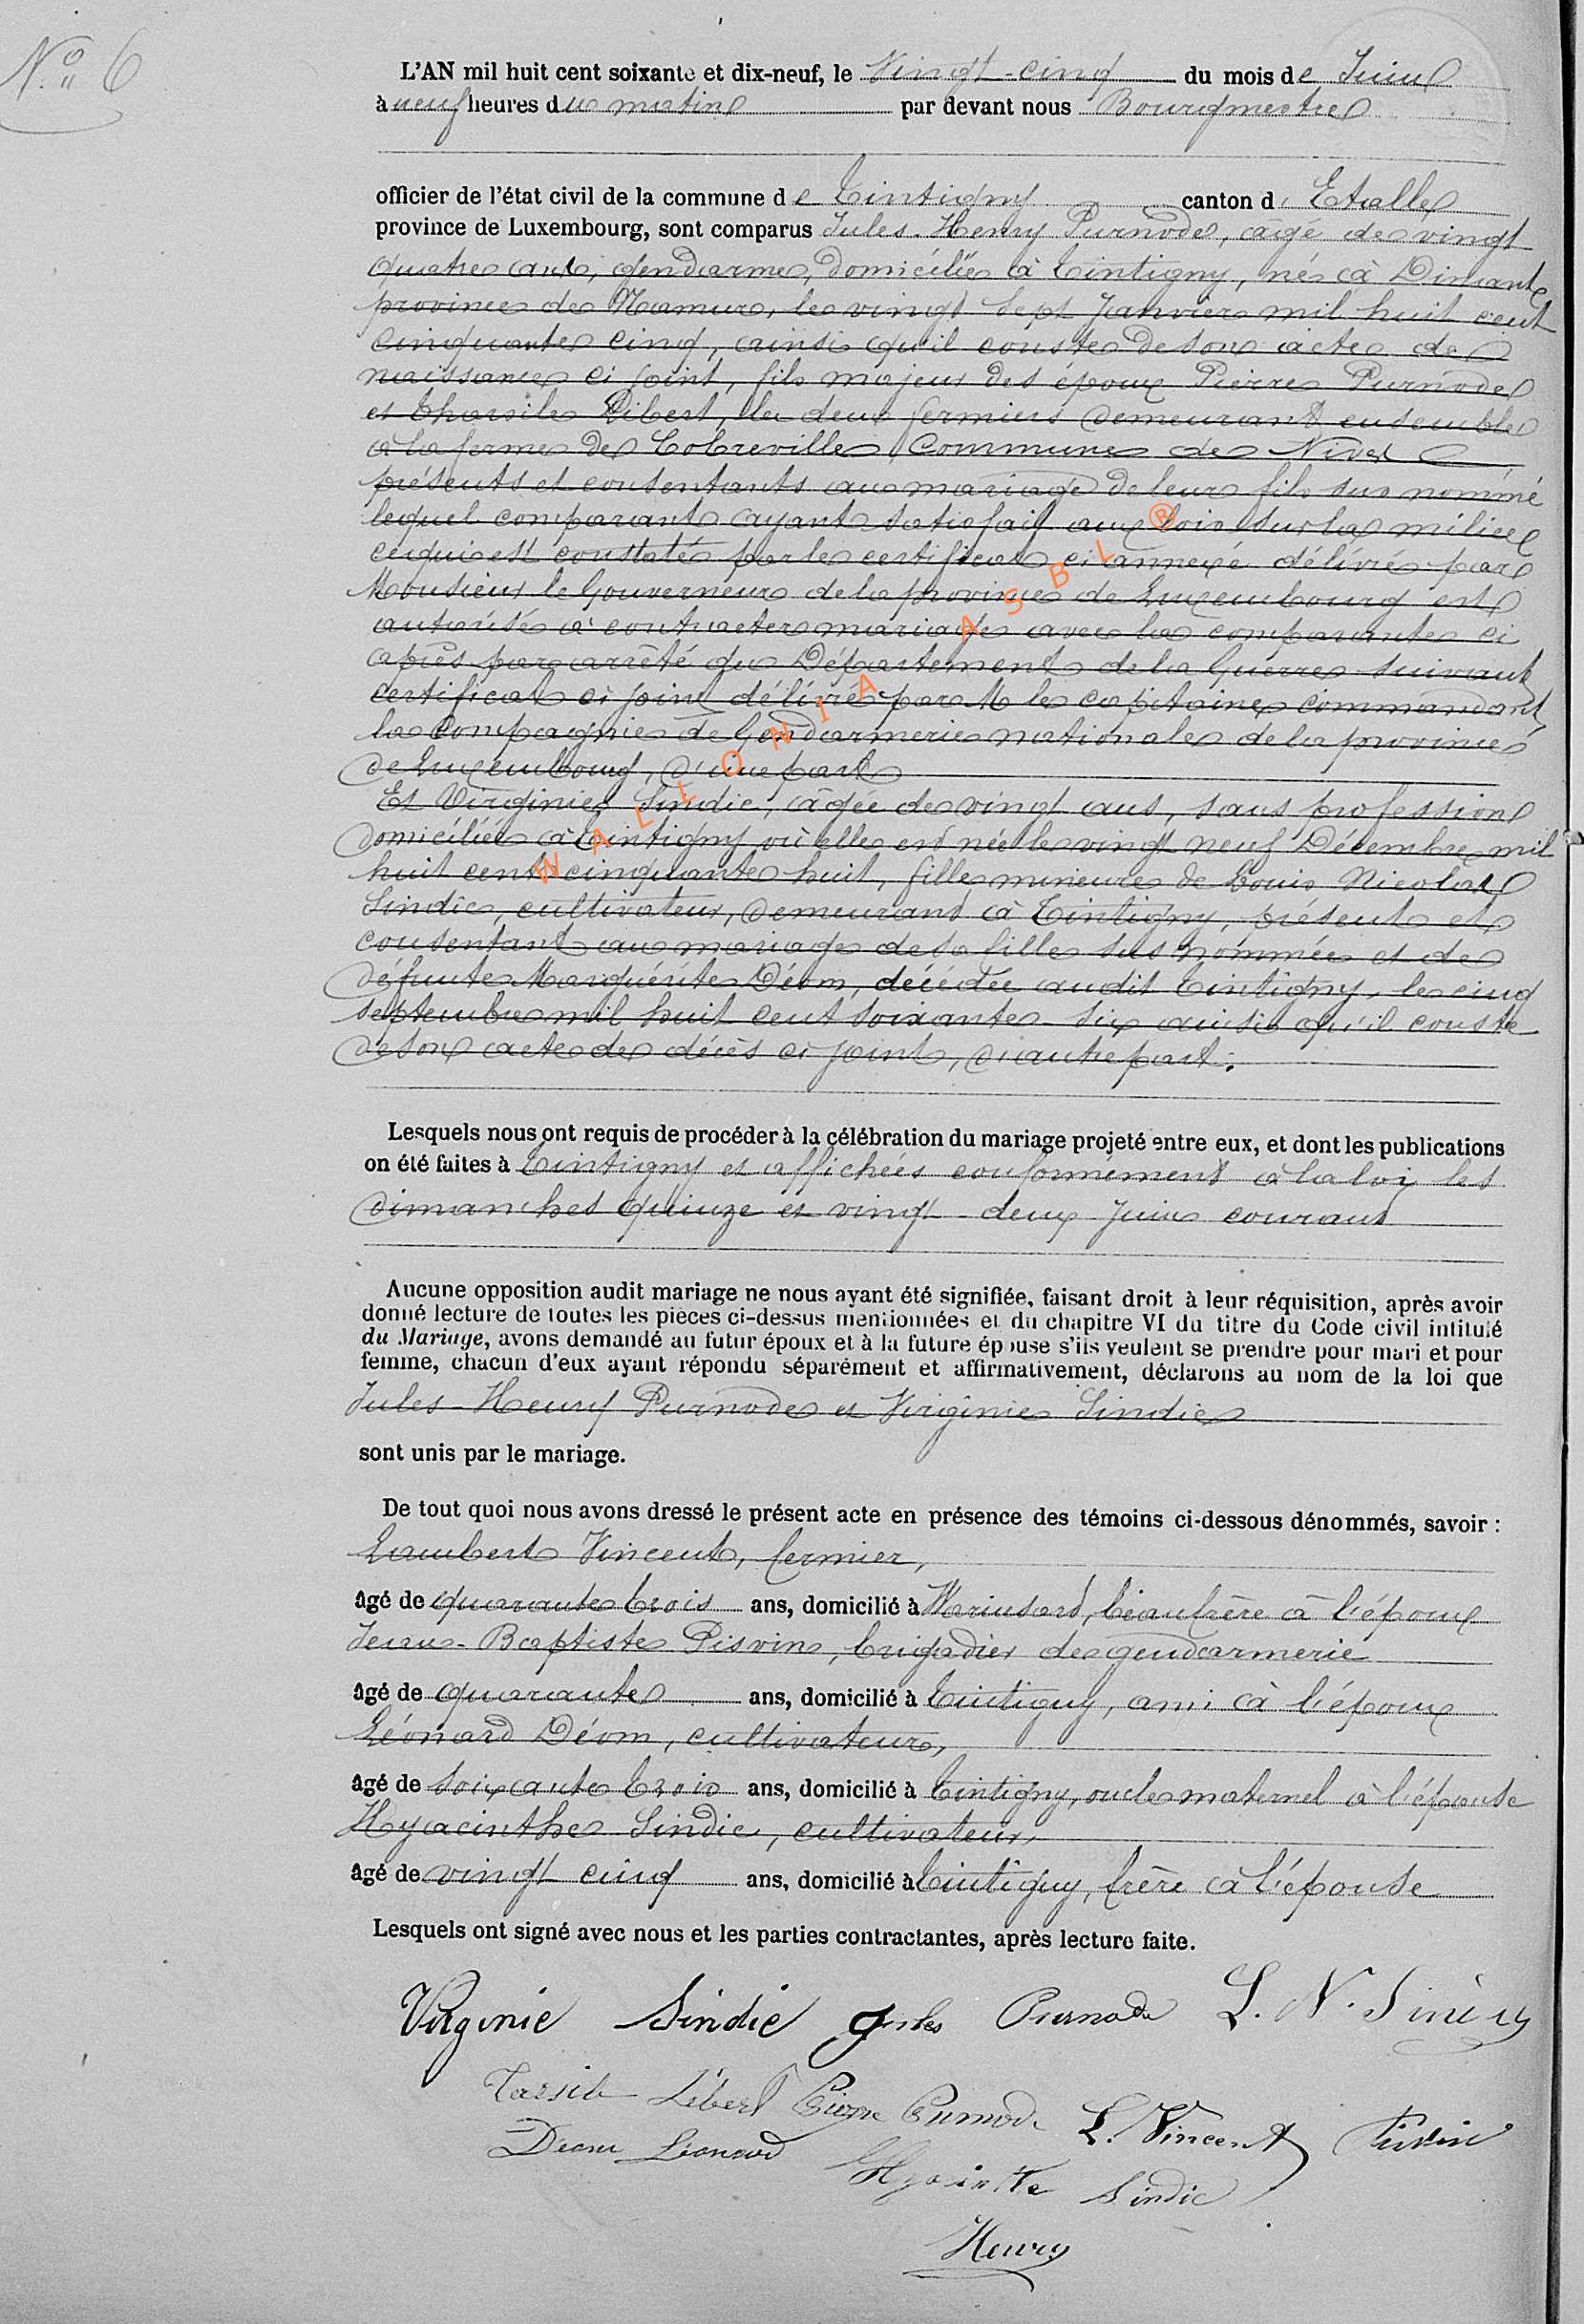 N.° 6
L'AN mil huit cent soixante et dix-neuf, le Vingt-cinq du mois de Juin
à neuf heures du matin par devant nous Bourgmestre
officier de l'état civil de la commune de Tintigny canton d'Etalle
province de Luxembourg, sont comparus Jules-Henry Purnode, âgé de vingt
quatre ans, gendarme, domicilié à Tintigny, né à Dinant
province de Namur, le vingt sept Janvier mil huit cent
cinquante cinq, ainsi qu'il conste de son acte de
naissance ci joint, fils majeur des époux Pierre Purnode
et Tharsile Libert, les deux fermiers demeurant ensemble
à la ferme de Cobreville Commune de Nives
présents et consentants au mariage de leur fils sus nommé
lequel comparant ayant satisfait aux lois sur la milice
ce qui est constaté par le certificat ci annexé délivré par
Monsieur le Gouverneur de la province de Luxembourg est
autorisé à contracter mariage avec la comparante ci
après par arrêté du Département de la Guerre suivant
certificat ci joint délivré par M le capitaine commandant
la Compagnie de Gendarmerie nationale de la province
de Luxembourg, d'une part
Et Virginie Sindic, âgée de vingt ans, sans profession
domiciliée à Tintigny où elle est née le vingt neuf Décembre mil
huit cent cinquante huit, fille mineure de Louis Nicolas
Sindic, cultivateur, demeurant à Tintigny, présent et
consentant au mariage de sa fille sus nommée et de
défunte Marguérite Déom, décédée audit Tintigny, le cinq
septembre mil huit cent soixante-six ainsi qu'il conste
de son acte de décès ci joint, d'autre part.
Lesquels nous ont requis de procéder à la célébration du mariage projeté entre eux, et dont les publications
on été faites à Tintigny et affichées conformément à la loi les
dimanches quinze et vingt-deux Juin courant
Aucune opposition audit mariage ne nous ayant été signifiée, faisant droit à leur réquisition, après avoir
donné lecture de toutes les pièces ci-dessus mentionnées et du chapitre VI du titre du Code civil intitulé
du Mariage, avons demandé au futur époux et à la future épouse s'ils veulent se prendre pour mari et pour
femme, chacun d'eux ayant répondu séparément et affirmativement, déclarons au nom de la loi que
Jules-Henry Purnode et Virginie Sindic
sont unis par le mariage.
De tout quoi nous avons dressé le présent acte en présence des témoins ci-dessous dénommés, savoir :
Lambert Vincent, fermier,
âgé de quarante trois ans, domicilié à Warinsard, beaufrère à l'époux
Jean-Baptiste Pisvin, brigadier de gendarmerie
âgé de quarante ans, domicilié à Tintigny, ami à l'époux
Léonard Déom, cultivateur,
âgé de soixante trois ans, domicilié à Tintigny, oncle maternel à l'épouse
Hyacinthe Sindic, cultivateur,
âgé de vingt cinq ans, domicilié à Tintigny, frère à l'épouse
Lesquels ont signé avec nous et les parties contractantes, après lecture faite.
Virginie Sindic Jules Purnode L. N. Sindic
Tarsile Libert Pierre Purnode L. Vincent Pisvin
Deom Léonard Hyacinthe Sindic
Henry
WALLONIA ASBL ®